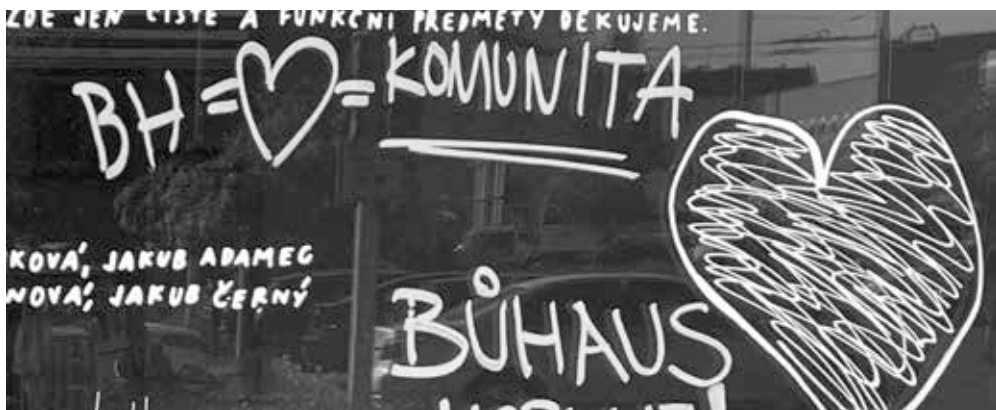 ZDE JEN ČISTÉ A FUNKČNÍ PŘEDMĚTY DĚKUJEME.
BH = ♡ = KOMUNITA
KOVÁ, JAKUB ADAMEC
NOVÁ, JAKUB ČERNÝ
BŮHAUS